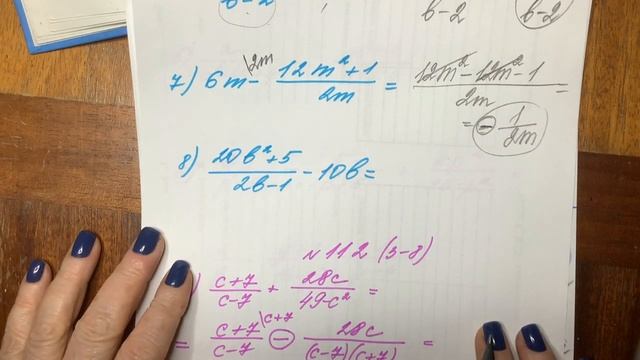 b-2 b-2 b-2
7) 6m\2m - (12m²+1)/(2m) = (12m²-12m²-1)/(2m) =
= ⊖ 1/(2m)
8) (20b²+5)/(2b-1) - 10b =
№112 (3-8)
) (c+7)/(c-7) + (28c)/(49-c²) =
= (c+7)/(c-7)\c+7 ⊖ (28c)/((c-7)(c+7)) =